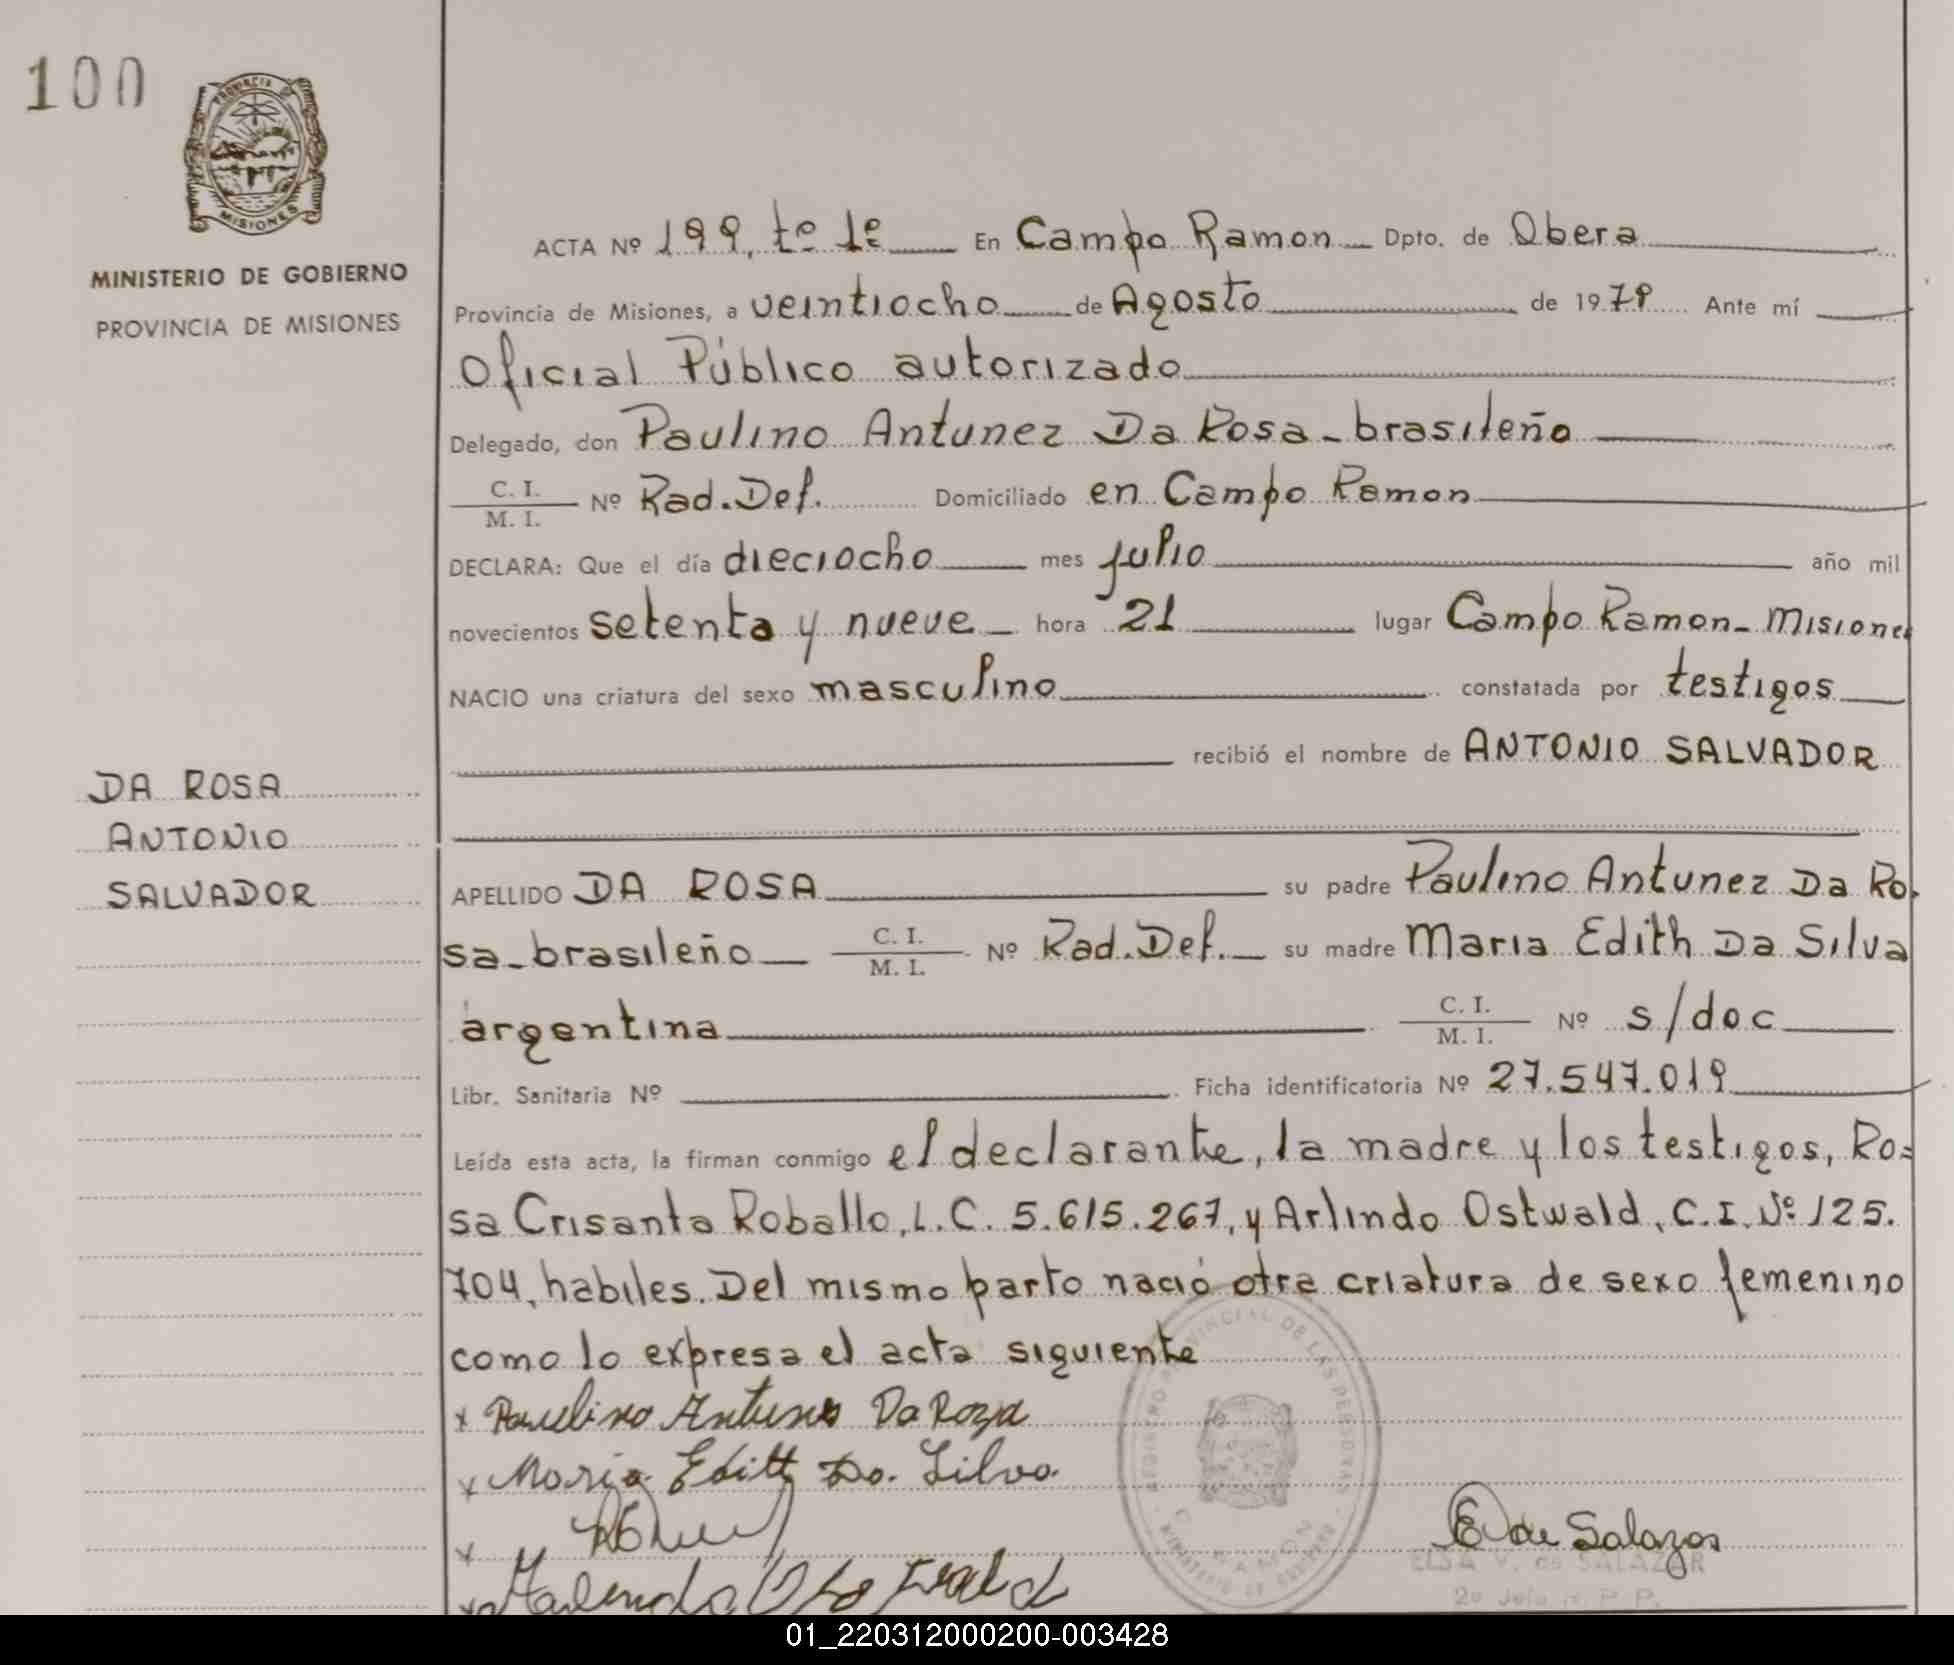 100
PROVINCIA DE
MISIONES
MINISTERIO DE GOBIERNO
PROVINCIA DE MISIONES
ACTA Nº 199, tº 1º En Campo Ramon Dpto. de Obera
Provincia de Misiones, a veintiocho de Agosto de 1979 Ante mí
Oficial Público autorizado
Delegado, don Paulino Antunez Da Rosa - brasileño
C. I.
M. I. Nº Rad. Def. Domiciliado en Campo Ramon
DECLARA: Que el día dieciocho mes julio año mil
novecientos setenta y nueve hora 21 lugar Campo Ramon - Misiones
NACIO una criatura del sexo masculino constatada por testigos
recibió el nombre de ANTONIO SALVADOR
DA ROSA
ANTONIO
SALVADOR
APELLIDO DA ROSA su padre Paulino Antunez Da Ro-
sa - brasileño C. I. M. I. Nº Rad. Def. su madre Maria Edith Da Silva
argentina C. I. M. I. Nº s/doc
Libr. Sanitaria Nº Ficha identificatoria Nº 27.547.019
Leída esta acta, la firman conmigo el declarante, la madre y los testigos, Ro=
sa Crisanta Roballo, L.C. 5.615.267, y Arlindo Ostwald, C.I. Nº 125.
704, habiles. Del mismo parto nació otra criatura de sexo femenino
como lo expresa el acta siguiente
x Paulino Antunes Da Roza
x Maria Editt Da. Silva
x
x
REGISTRO PROVINCIAL DE LAS PERSONAS
MINISTERIO DE GOBIERNO
E de Salazar
ELSA V. de SALAZAR
01_220312000200-003428